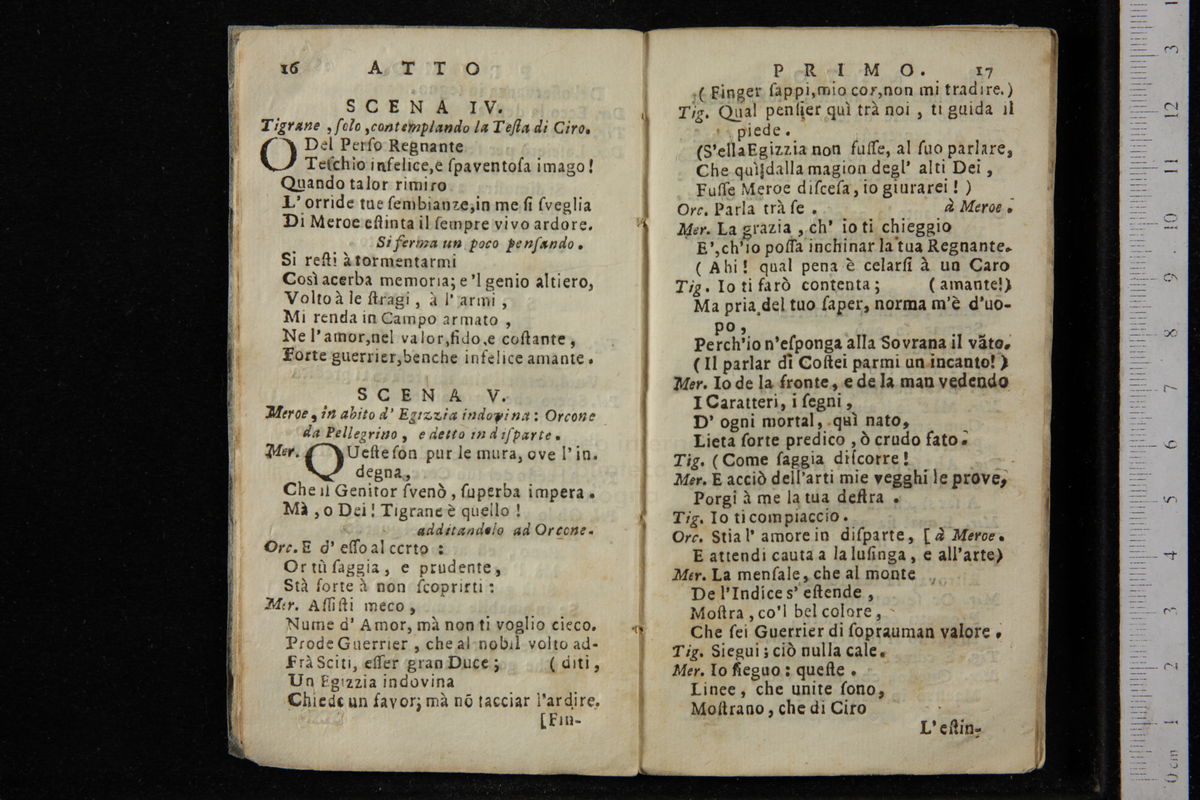 16 ATTO
SCENA IV.
Tigrane, ſolo, contemplando la Teſta di Ciro.
O Del Perſo Regnante
Teſchio infelice, e ſpaventoſa imago!
Quando talor rimiro
L'orride tue ſembianze, in me ſi ſveglia
Di Meroe eſtinta il ſempre vivo ardore.
Si ferma un poco penſando.
Si reſti à tormentarmi
Così acerba memoria; e 'l genio altiero,
Volto à le ſtragi, à l' armi,
Mi renda in Campo armato,
Ne l'amor, nel valor, fido, e coſtante,
Forte guerrier, benche infelice amante.
SCENA V.
Meroe, in abito d' Egizzia indovina: Orcone
da Pellegrino, e detto in diſparte.
Mer. QUeſte ſon pur le mura, ove l'in.
degna,
Che il Genitor ſvenò, ſuperba impera.
Mà, o Dei! Tigrane è quello!
additandolo ad Orcone.
Orc. E d' eſſo al certo:
Or tù ſaggia, e prudente,
Stà forte à non ſcoprirti:
Mer. Aſſiſti meco,
Nume d' Amor, mà non ti voglio cieco.
Prode Guerrier, che al nobil volto ad-
Frà Sciti, eſſer gran Duce; (diti,
Un Egizzia indovina
Chiede un favor; mà nõ tacciar l'ardire.
[Fin-
PRIMO. 17
(Finger ſappi, mio cor, non mi tradire.)
Tig. Qual penſier quì trà noi, ti guida il
piede.
(S'ella Egizzia non fuſſe, al ſuo parlare,
Che quì dalla magion degl' alti Dei,
Fuſſe Meroe diſceſa, io giurarei!)
Orc. Parla trà ſe. à Meroe.
Mer. La grazia, ch' io ti chieggio
E', ch'io poſſa inchinar la tua Regnante.
(Ahi! qual pena è celarſi à un Caro
Tig. Io ti farò contenta; (amante!)
Ma pria del tuo ſaper, norma m'è d'uo-
po,
Perch'io n'eſponga alla Sovrana il vãto.
(Il parlar di Coſtei parmi un incanto!)
Mer. Io de la fronte, e de la man vedendo
I Caratteri, i ſegni,
D' ogni mortal, quì nato,
Lieta ſorte predico, ò crudo fato.
Tig. (Come ſaggia diſcorre!
Mer. E acciò dell'arti mie vegghi le prove,
Porgi à me la tua deſtra.
Tig. Io ti compiaccio.
Orc. Stia l' amore in diſparte, [à Meroe.
E attendi cauta a la luſinga, e all'arte)
Mer. La menſale, che al monte
De l'Indice s' eſtende,
Moſtra, co'l bel colore,
Che ſei Guerrier di ſoprauman valore.
Tig. Siegui; ciò nulla cale.
Mer. Io ſieguo: queſte.
Linee, che unite ſono,
Moſtrano, che di Ciro
L'eſtin-